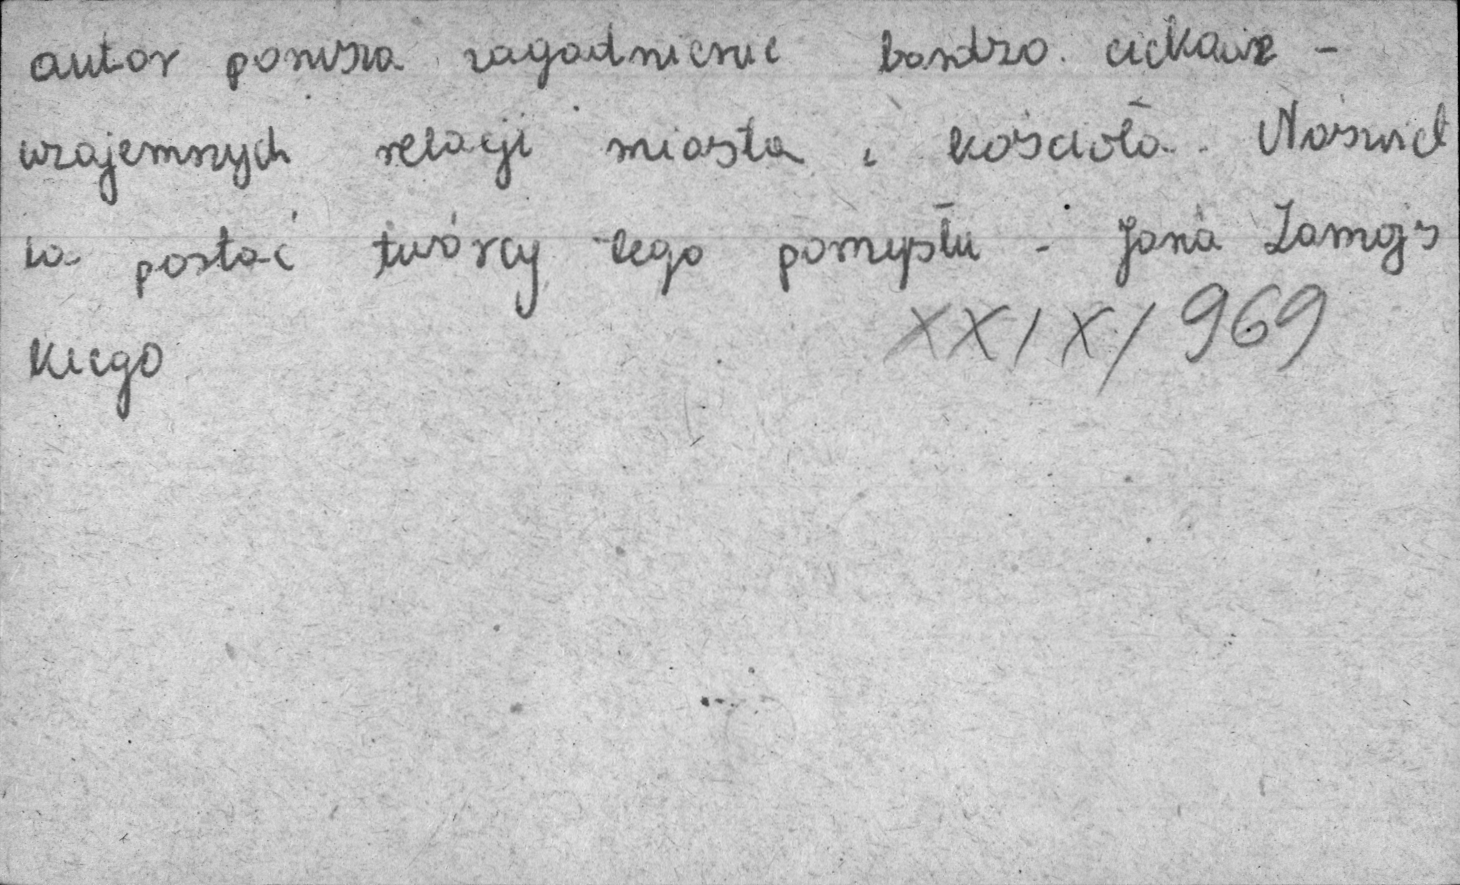 autor porusza zagadnienie bardzo ciekawe -
wzajemnych relacji miasta i kościoła. Naświet
la postać twórcy tego pomysłu - Jana Zamojs
kiego
XXIX/969